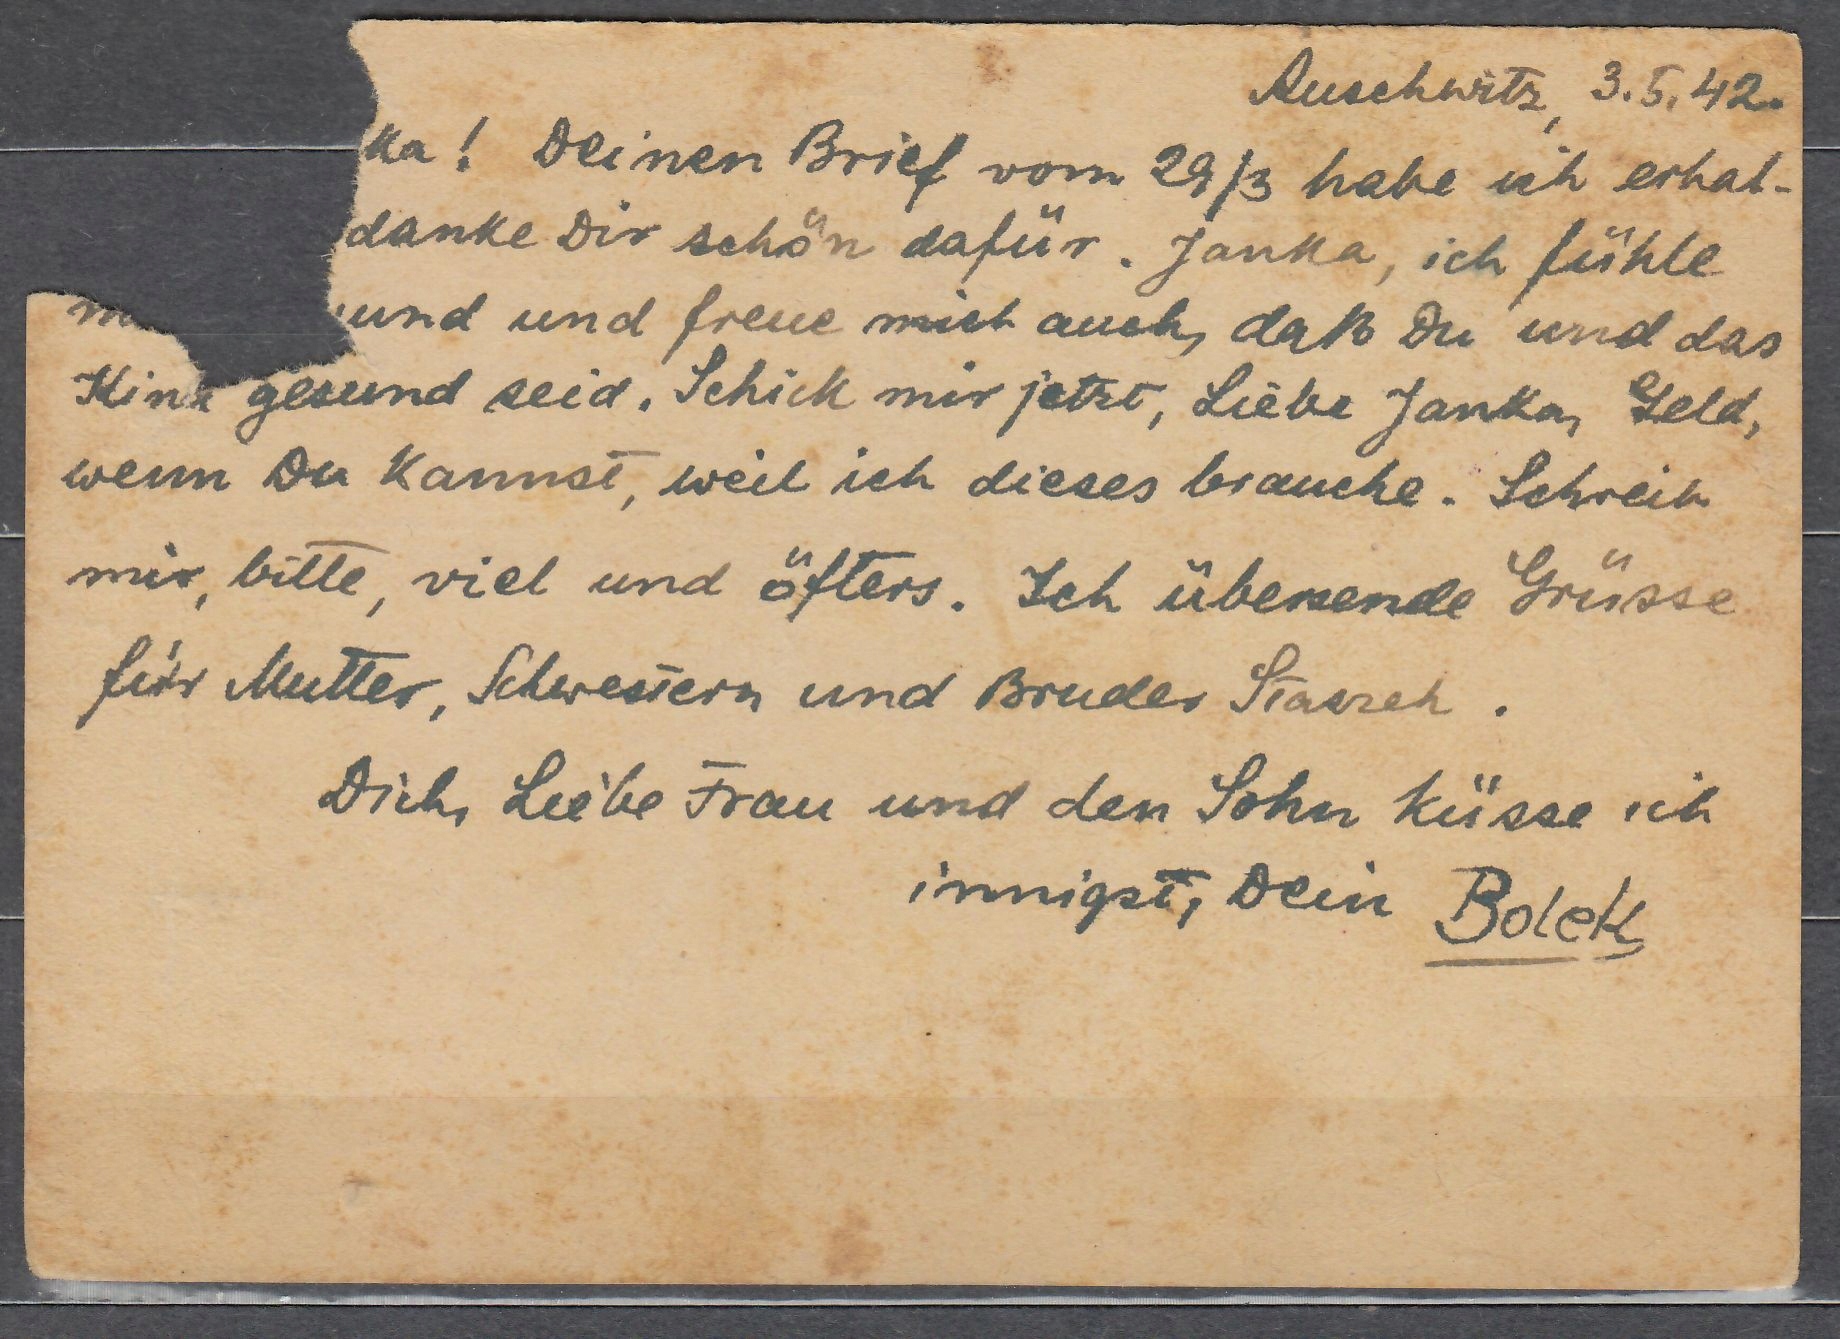 Auschwitz, 3.5.42.
ka! Deinen Brief vom 29/3 habe ich erhal-
danke Dir schön dafür. Janka, ich fühle
und und freue mich auch, daß Du und das
Kind gesund seid. Schick mir jetzt, Liebe Janka, Geld,
wenn Du kannst, weil ich dieses brauche. Schreib
mir, bitte, viel und öfters. Ich übersende Grüsse
für Mutter, Schwestern und Bruder Staszek.
Dich, Liebe Frau und den Sohn küsse ich
innigst, Dein Bolek